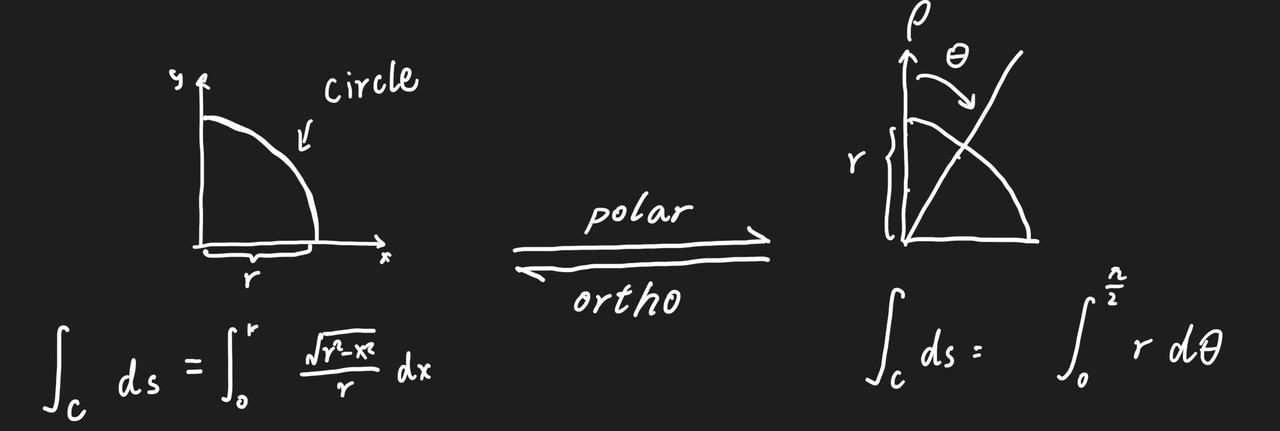 y
circle
x
r
∫_C ds = ∫_0^r √(r²-x²)/r dx
polar
ortho
ρ
θ
r
∫_C ds = ∫_0^(π/2) r dθ